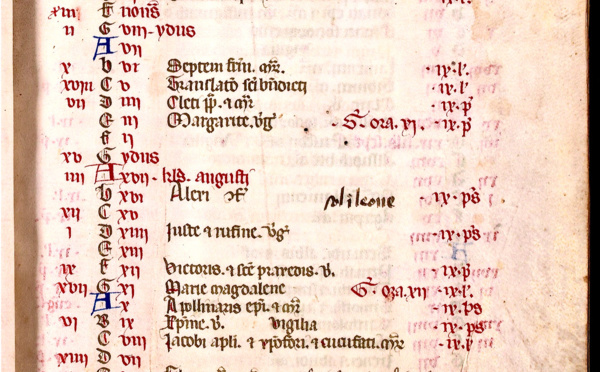 xiii E nonis
ii G viii - ydus
A vii
x b vi Septem frm. mr. ix. l.
xviii C v Translatō sci bndicti ix. l
vii D iiii Cleti pp. et mr ix. p
E iii Margarite. vg G. ora. xi. ix. p
F ii
xv G ydus
iiii A xvii - kls. augusti
h xvi Alexi cf ix. ps
xii C xv
i D xiiii Juste et rufine. vg ix. ps
E xiii
ix F xii Victoris. et sce praxedis. v. ix. p
xvii G xi Marie magdalene G. ora. xii ix. l.
A x Apllinaris epi. et mr ix. ps
vi B ix Xpine. v. vigilia ix. ps
C viii Jacobi apli. et xpofori. et cucufati. mr ix. p
xiiii D vii